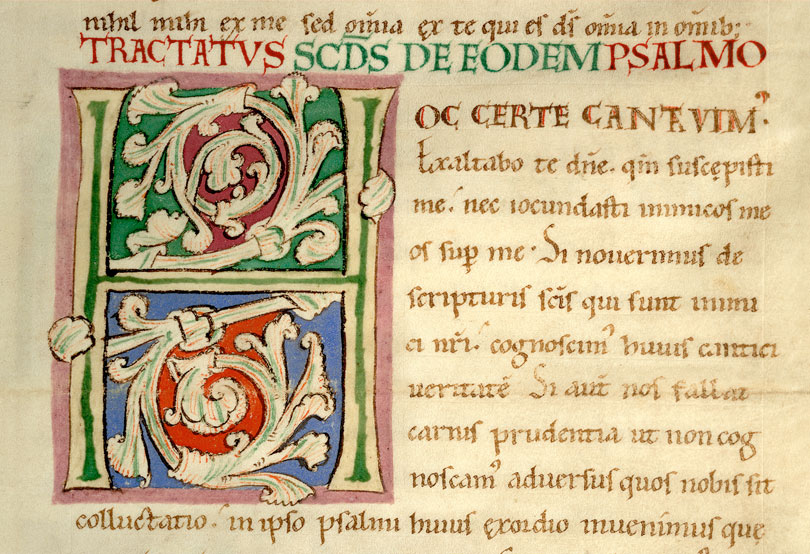 nihil mihi ex me sed om̅ia ex te qui es d̅s om̅ia in omnib;
TRACTATVS SCD̅S DE EODEM PSALMO
HOC CERTE CANTAVIM᾽
Exaltabo te dn̅e. qm̅ suscepisti
me. nec iocundasti inimicos me
os sup̅ me. Si nouerimus de
scripturis sc̅is qui sunt inimi
ci nr̅i. cognoscim᾽ huius cantici
ueritate̅ Si aut̅ nos fallat
carnis prudentia ut non cog
noscam᾽ aduersus quos nobis sit
colluctatio. in ipso psalmi huius ęxordio inuenimus quę